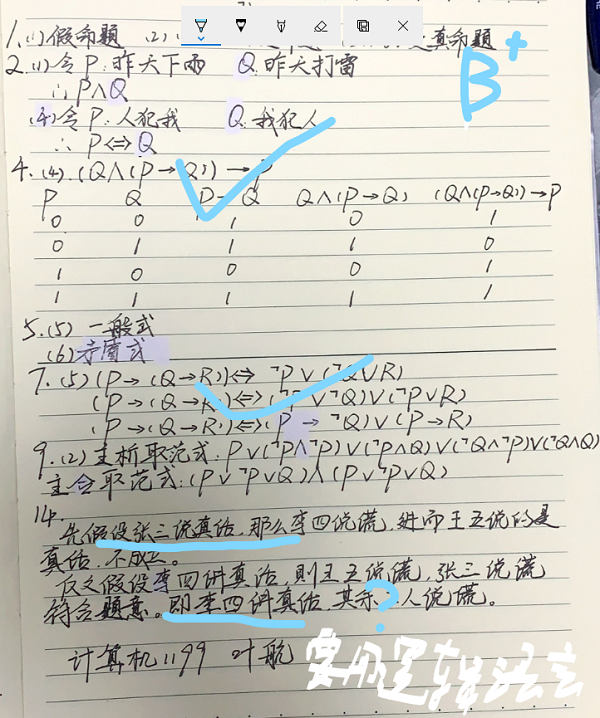 1. (1) 假命题 (2) 真命题
B+
2. (1) 令 P: 昨天下雨 Q: 昨天打雷
∴ P∧Q
(4) 令 P: 人犯我 Q: 我犯人
∴ P⇔Q
4. (4). (Q∧(P→Q))→P
P Q P→Q Q∧(P→Q) (Q∧(P→Q))→P
0 0 1 0 1
0 1 1 1 0
1 0 0 0 1
1 1 1 1 1
5. (5) 一般式
(6) 矛盾式
7. (5) (P→(Q→R))⇔ ¬P∨(¬Q∨R)
(P→(Q→R))⇔(¬P∨¬Q)∨(¬P∨R)
(P→(Q→R))⇔(P→¬Q)∨(P→R)
9. (2) 主析取范式: P∨(¬P∧¬P)∨(¬P∧Q)∨(¬Q∧¬P)∨(¬Q∧Q)
主合取范式: (P∨¬P∨Q)∧(P∨¬P∨Q)
14.
先假设张三说真话,那么李四说谎,进而王五说的是
真话,不成立。
反之假设李四讲真话,则王五说谎,张三说谎
符合题意。即李四讲真话,其余 人说谎。
?
计算机1199 叶航
要用逻辑语言